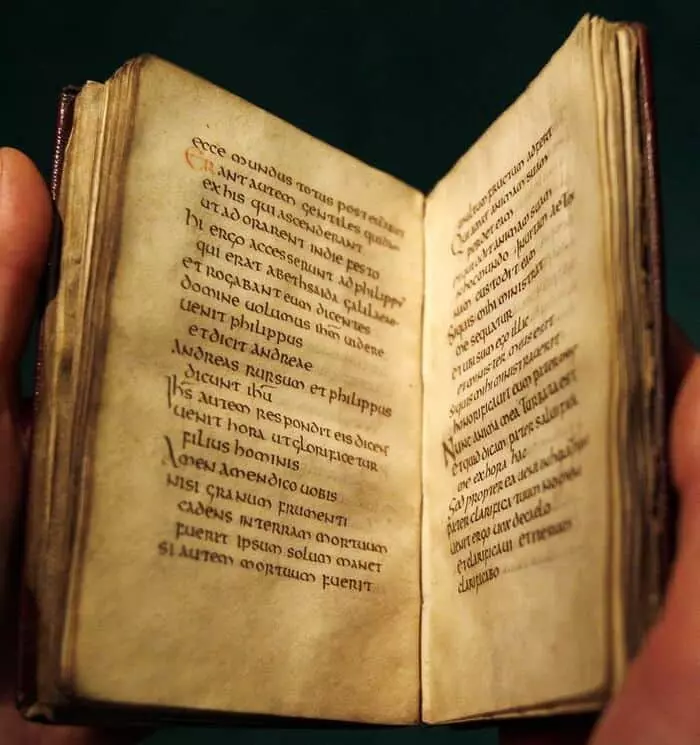 ecce mundus totus post eum abiit
Erant autem gentiles quidam
ex his qui ascenderant
ut adorarent in die festo
hi ergo accesserunt ad philippū
qui erat a bethsaida galilaeae
et rogabant eum dicentes
domine uolumus ihm uidere
uenit philippus
et dicit andreae
Andreas rursum et philippus
dicunt ihu
Ihs autem respondit eis dicens
uenit hora ut glorificetur
filius hominis
Amen amen dico uobis
nisi granum frumenti
cadens in terram mortuum
fuerit ipsum solum manet
si autem mortuum fuerit
multum fructum adfert
Qui amat animam suam
perdet eam
et qui odit animam suam
in hoc mundo in uitam aeter
nam custodit eam
Si quis mihi ministrat
me sequatur
et ubi sum ego illic
et minister meus erit
Si quis mihi ministrauerit
honorificauit eum pater meus
Nunc anima mea turbata est
et quid dicam pater saluifica
me ex hora hac
Sed propterea ueni in horam hanc
pater clarifica tuum nomen
uenit ergo uox de caelo
et clarificaui et iterum
clarificabo